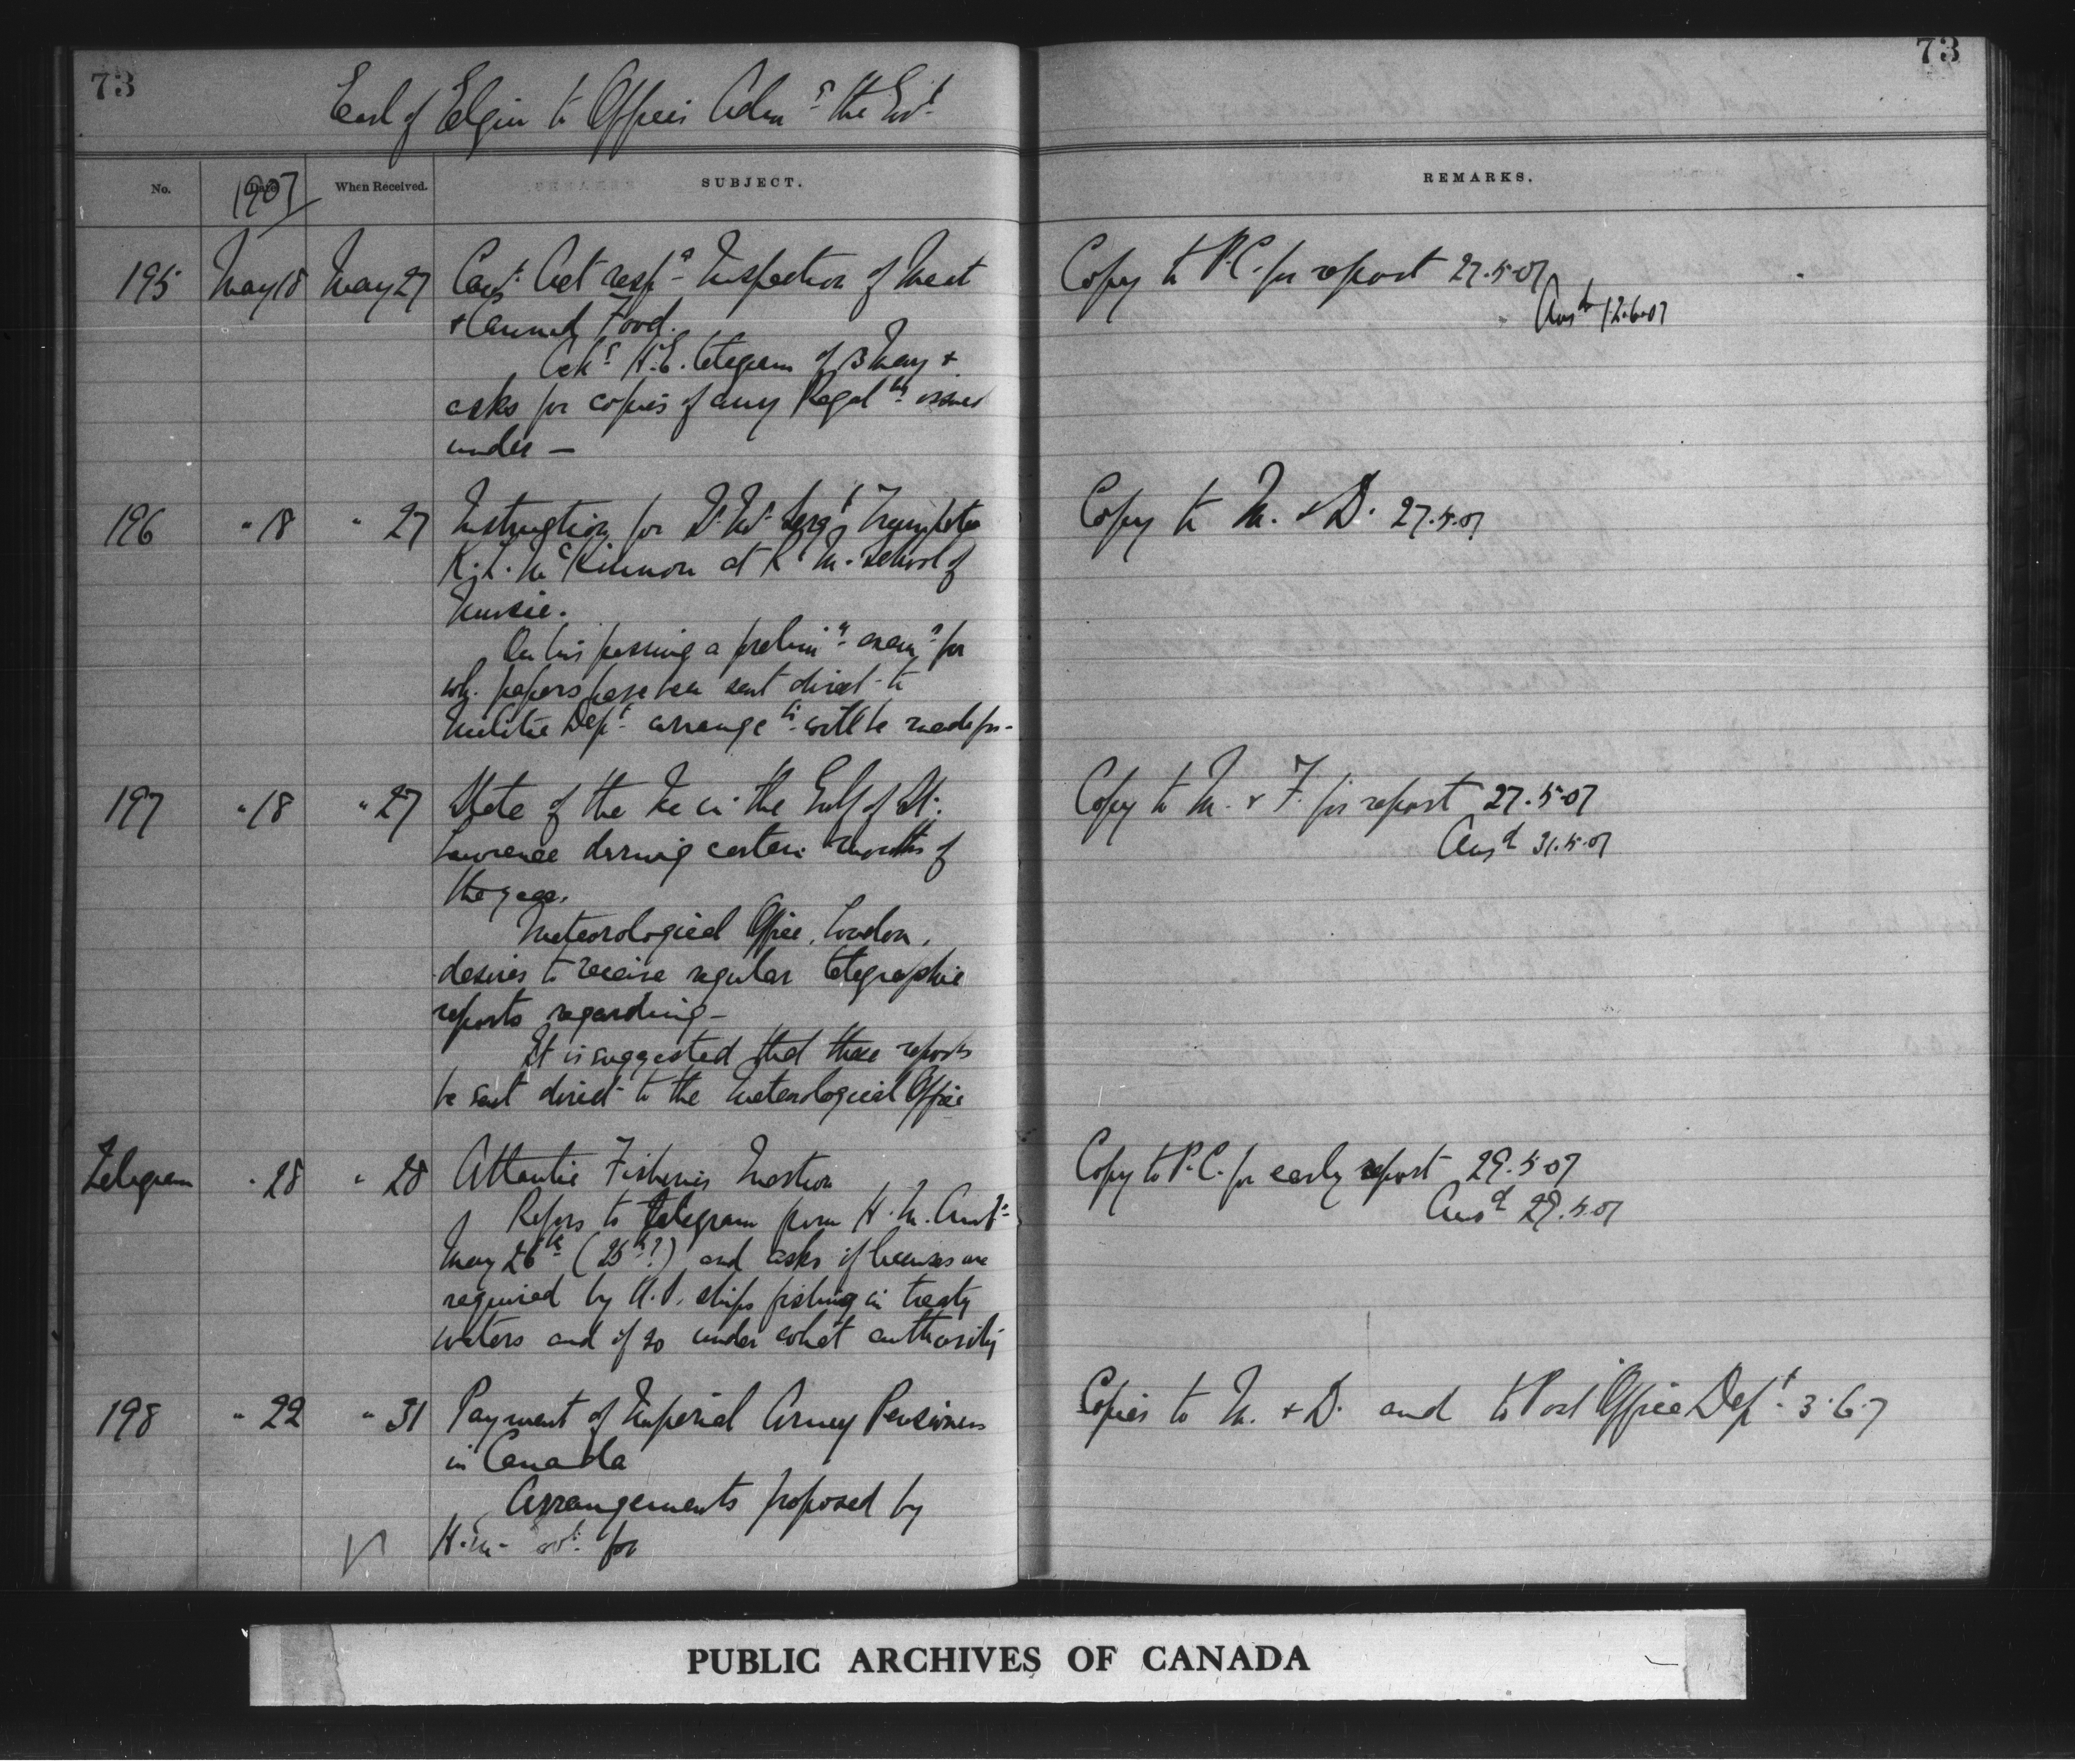 73
73
Earl of Elgin to Officer Admg the Govt
No. Date 1907 When Received. SUBJECT. REMARKS.
195 May 18 May 27 Can: Act respg Inspection of Meat
& Canned Food.
Ackg H.E. telegram of 13 May &
asks for copies of any Regultns issued
under —
Copy to P.C. for report 27.5.07
Ansd 12.6.07
196 " 18 " 27 Instruction for Sergt Trumpeter
McKinnon at R.M. School of
Music.
On his passing a prelimy examn for
wh. papers have been sent direct to
Militia Dept arrangets will be made for -
Copy to M. & D. 27.5.07
197 " 18 " 27 State of the Ice in the Gulf of St.
Lawrence during certain months of
the year.
Meteorological Office, London,
desires to receive regular telegraphic
reports regarding -
It is suggested that these reports
be sent direct to the Meteorological Office
Copy to M. & F. for report 27.5.07
Ansd 31.5.07
Telegram " 28 " 28 Atlantic Fisheries Question
Refers to telegram from H.M. Govt
May 26th (25th?) and asks if licenses are
required by U.S. ships fishing in treaty
waters and if so under what authority
Copy to P.C. for early report 29.5.07
Ansd 29.5.07
198 " 22 " 31 Payment of Imperial Army Pensioners
in Canada
Arrangements proposed by
H.M. Govt. for
Copies to M. & D. and to Post Office Dept. 3.6.7
PUBLIC ARCHIVES OF CANADA